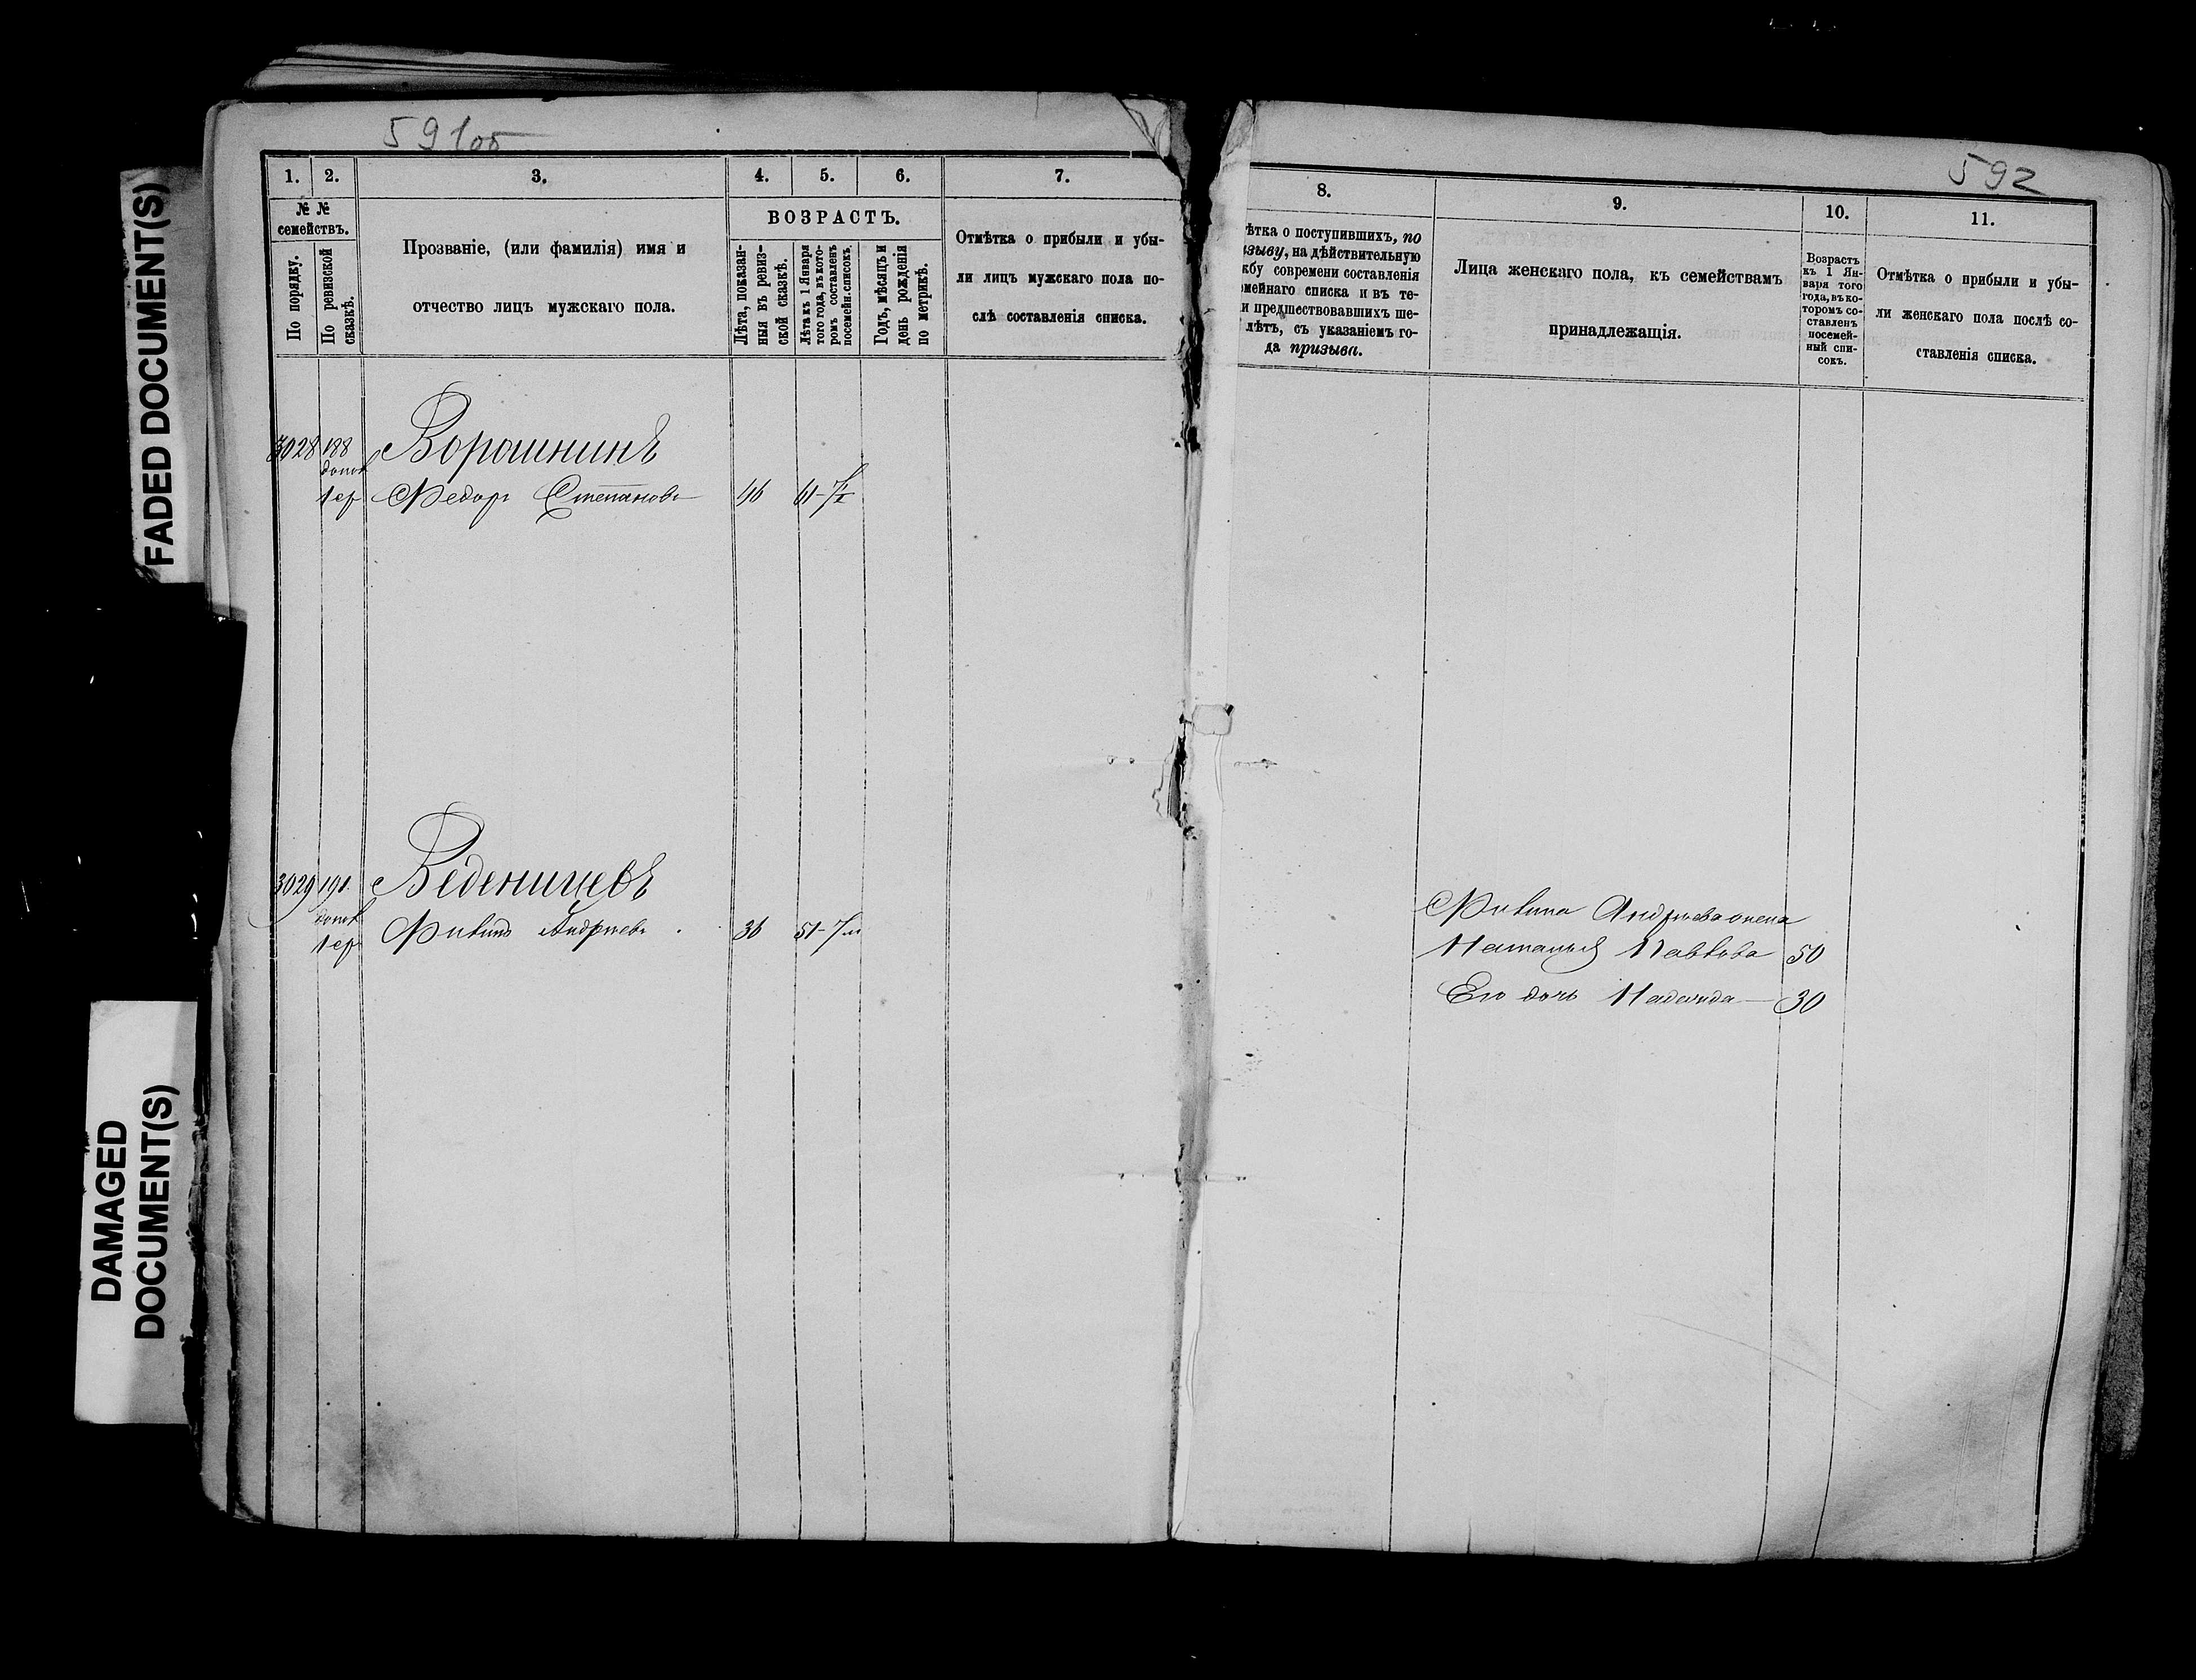 591об
592
FADED DOCUMENT(S)
DAMAGED
DOCUMENT(S)
1.
2.
3.
4.
5.
6.
7.
№ №
семействъ.
По порядку.
По ревизской
сказкѣ.
Прозваніе, (или фамилія) имя и
отчество лицъ мужскаго пола.
ВОЗРАСТЪ.
Лѣта, показан-
ныя въ ревиз-
ской сказкѣ.
Лѣта къ 1 Января
того года, въ кото-
ромъ составленъ
посемейн. списокъ.
Годъ, мѣсяцъ и
день рожденія
по метрикѣ.
Отмѣтка о прибыли и убы-
ли лицъ мужскаго пола по-
слѣ составленія списка.
3028 188 Ворошнинъ
допол
1 ср Федоръ Степановъ 46 61-
3029 191 Веденичевъ
допол
1 ср Филипъ Андреевъ 36 51-
8.
9.
10.
11.
ѣтка о поступившихъ, по
изыву, на дѣйствительную
жбу современи составленія
мейнаго списка и въ те-
и предшествовавшихъ ше-
лѣтъ, съ указаніемъ го-
да призыва.
Лица женскаго пола, къ семействамъ
принадлежащія.
Возрастъ
къ 1 Ян-
варя того
года, въ ко-
торомъ со-
ставленъ
посемей-
ный спи-
сокъ.
Отмѣтка о прибыли и убы-
ли женскаго пола послѣ со-
ставленія списка.
Филипа Андреева жена
Наталья Павлова 50
Его дочь Надежда 30